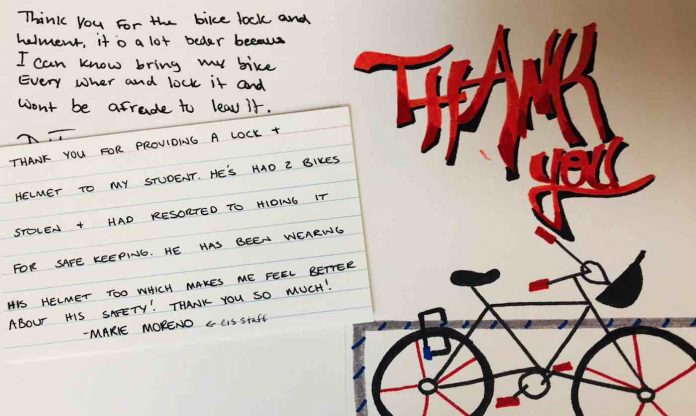 Thank you for the bike lock and
helment, it is a lot beder becaus
I can know bring my bike
Every wher and lock it and
wont be afraide to leav it.
THANK YOU FOR PROVIDING A LOCK +
HELMET TO MY STUDENT. HE'S HAD 2 BIKES
STOLEN + HAD RESORTED TO HIDING IT
FOR SAFE KEEPING. HE HAS BEEN WEARING
HIS HELMET TOO WHICH MAKES ME FEEL BETTER
ABOUT HIS SAFETY! THANK YOU SO MUCH!
-MARIE MORENO ← CIS Staff
THANK
you